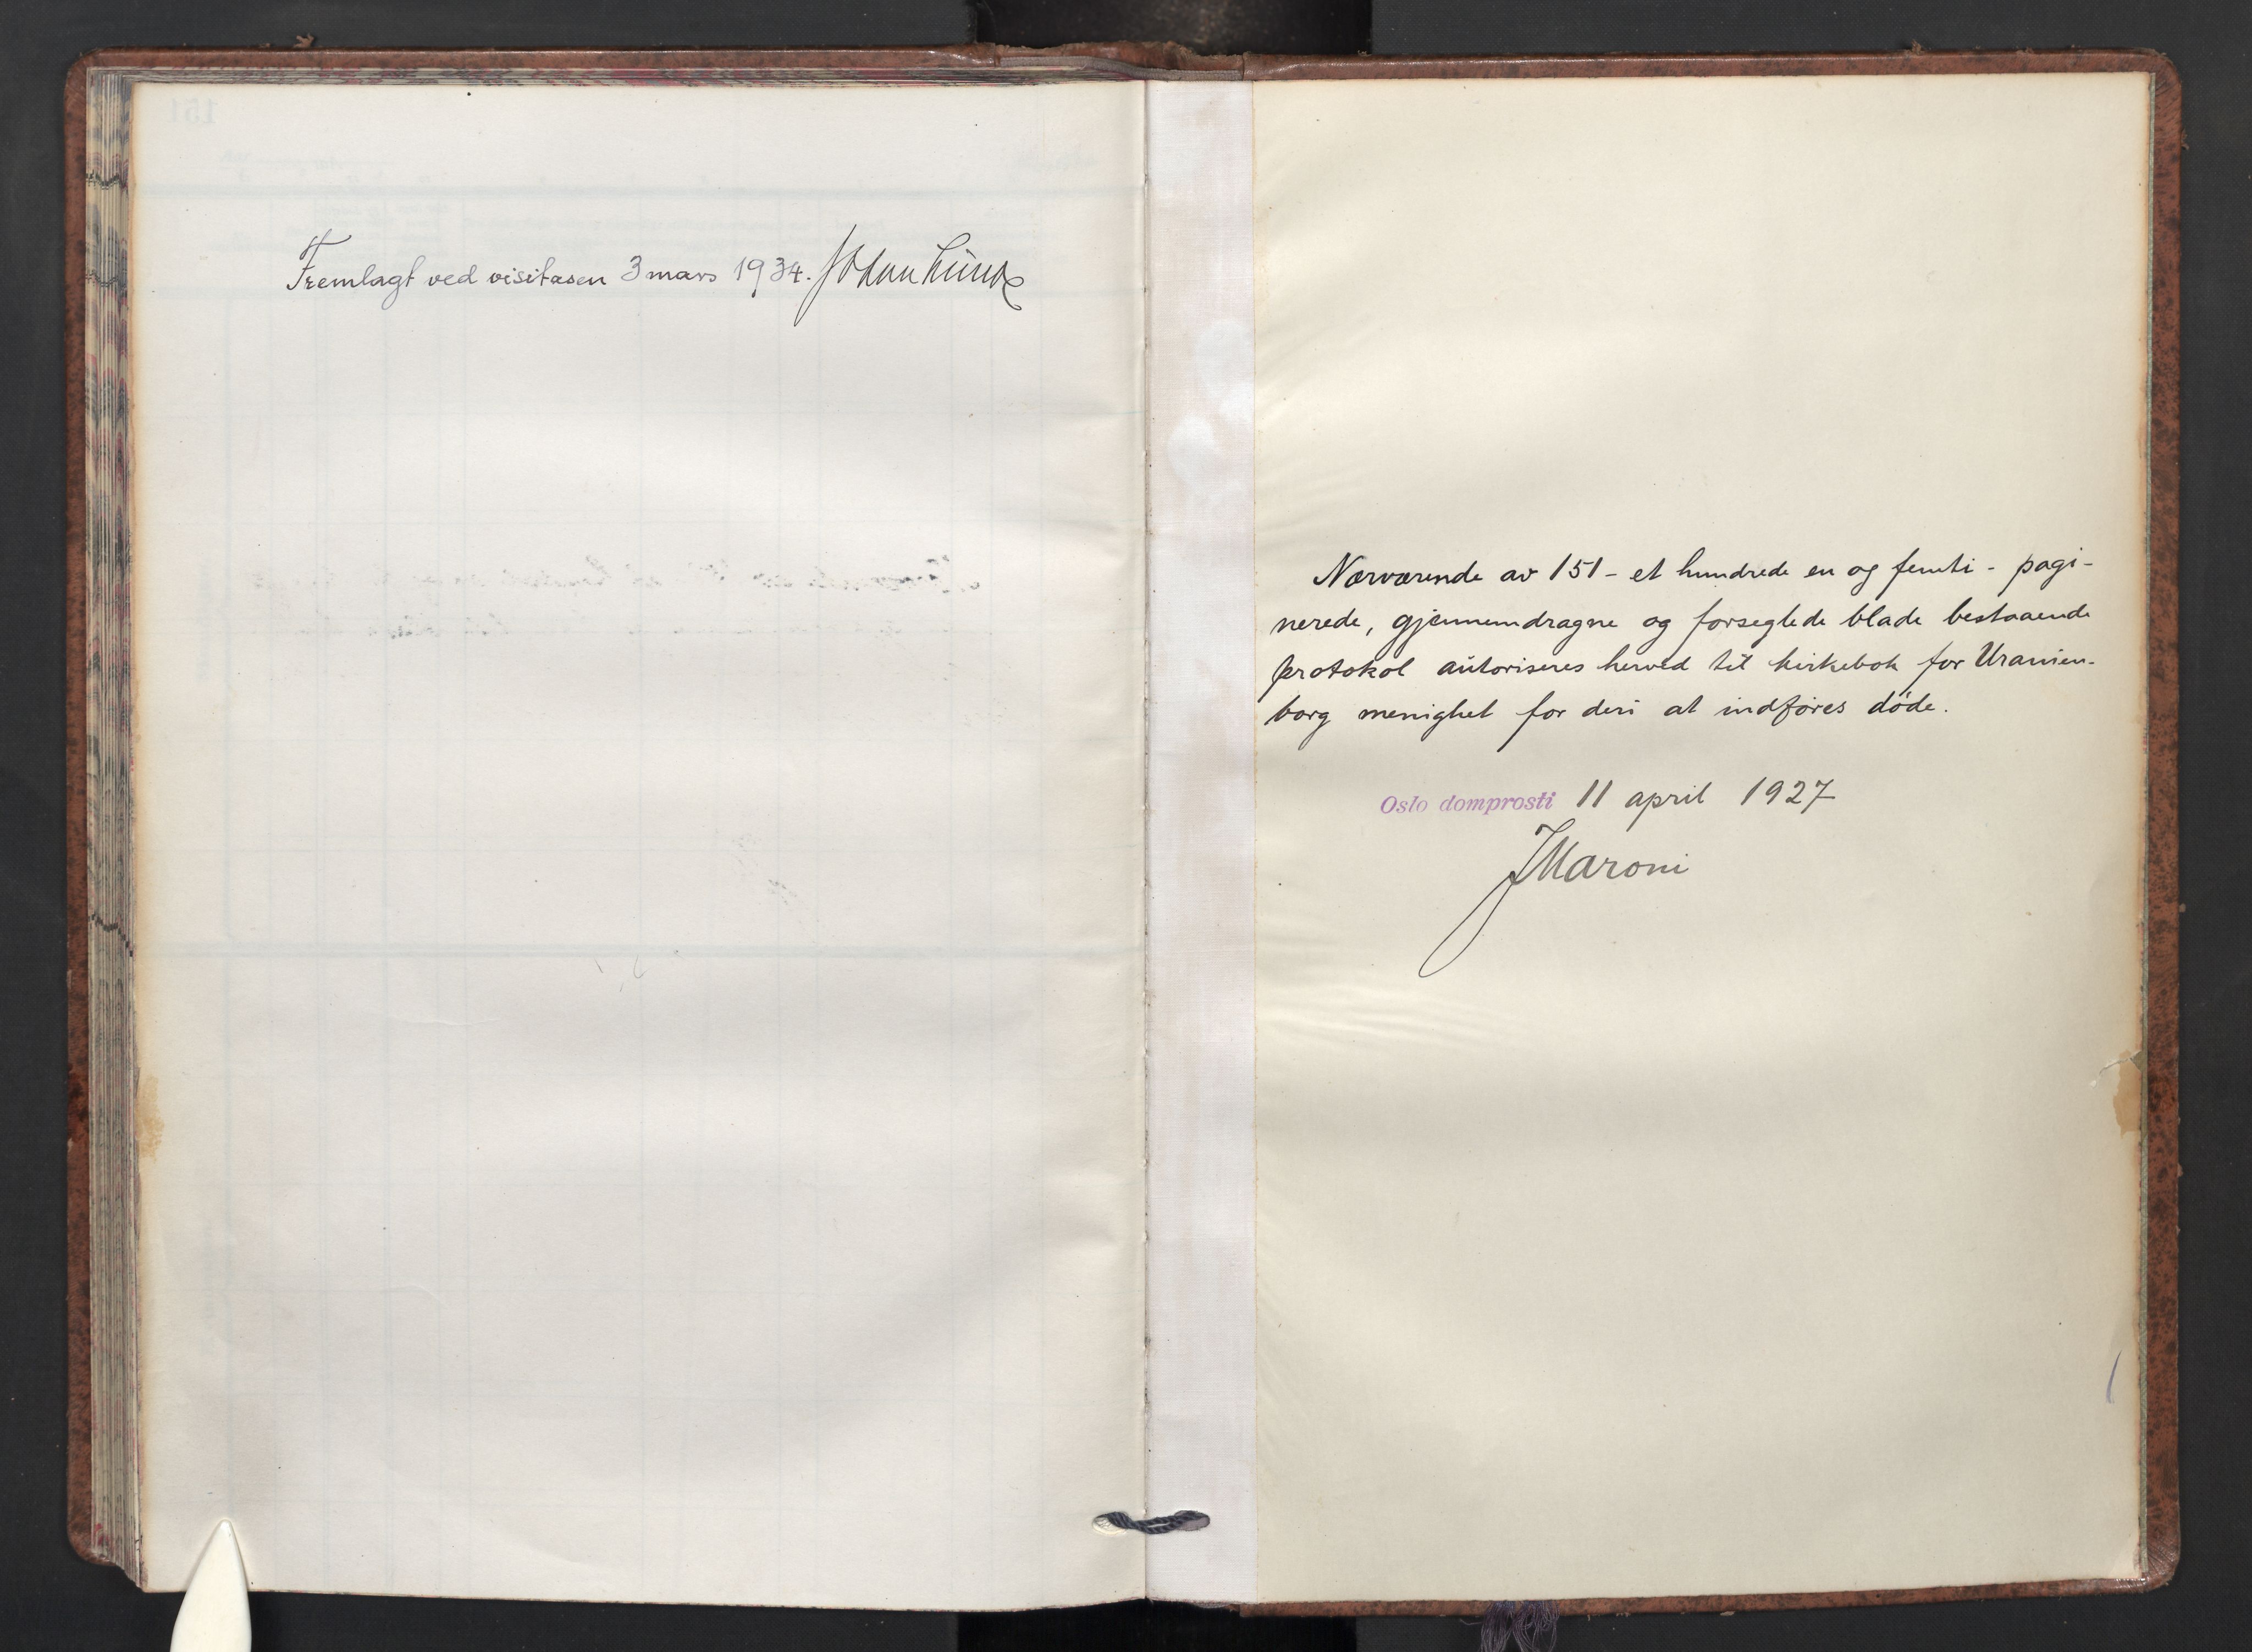 Fremlagt ved visitasen 3 mars 1934. Johan Lunde
Nærværende av 151 - et hundrede en og femti - pagi-
nerede, gjennemdragne og forseglede blade bestaaende
protokol autoriseres herved til kirkebok for Uranien-
borg menighet for deri at indføres døde.
Oslo domprosti 11 april 1927
JMaroni